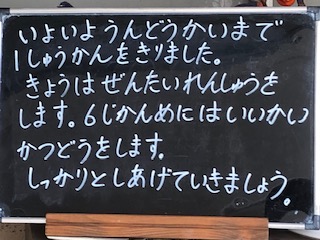 いよいようんどうかいまで
1しゅうかんをきりました。
きょうはぜんたいれんしゅうを
します。6じかんめにはいいかい
かつどうをします.
しっかりとしあげていきましょう。